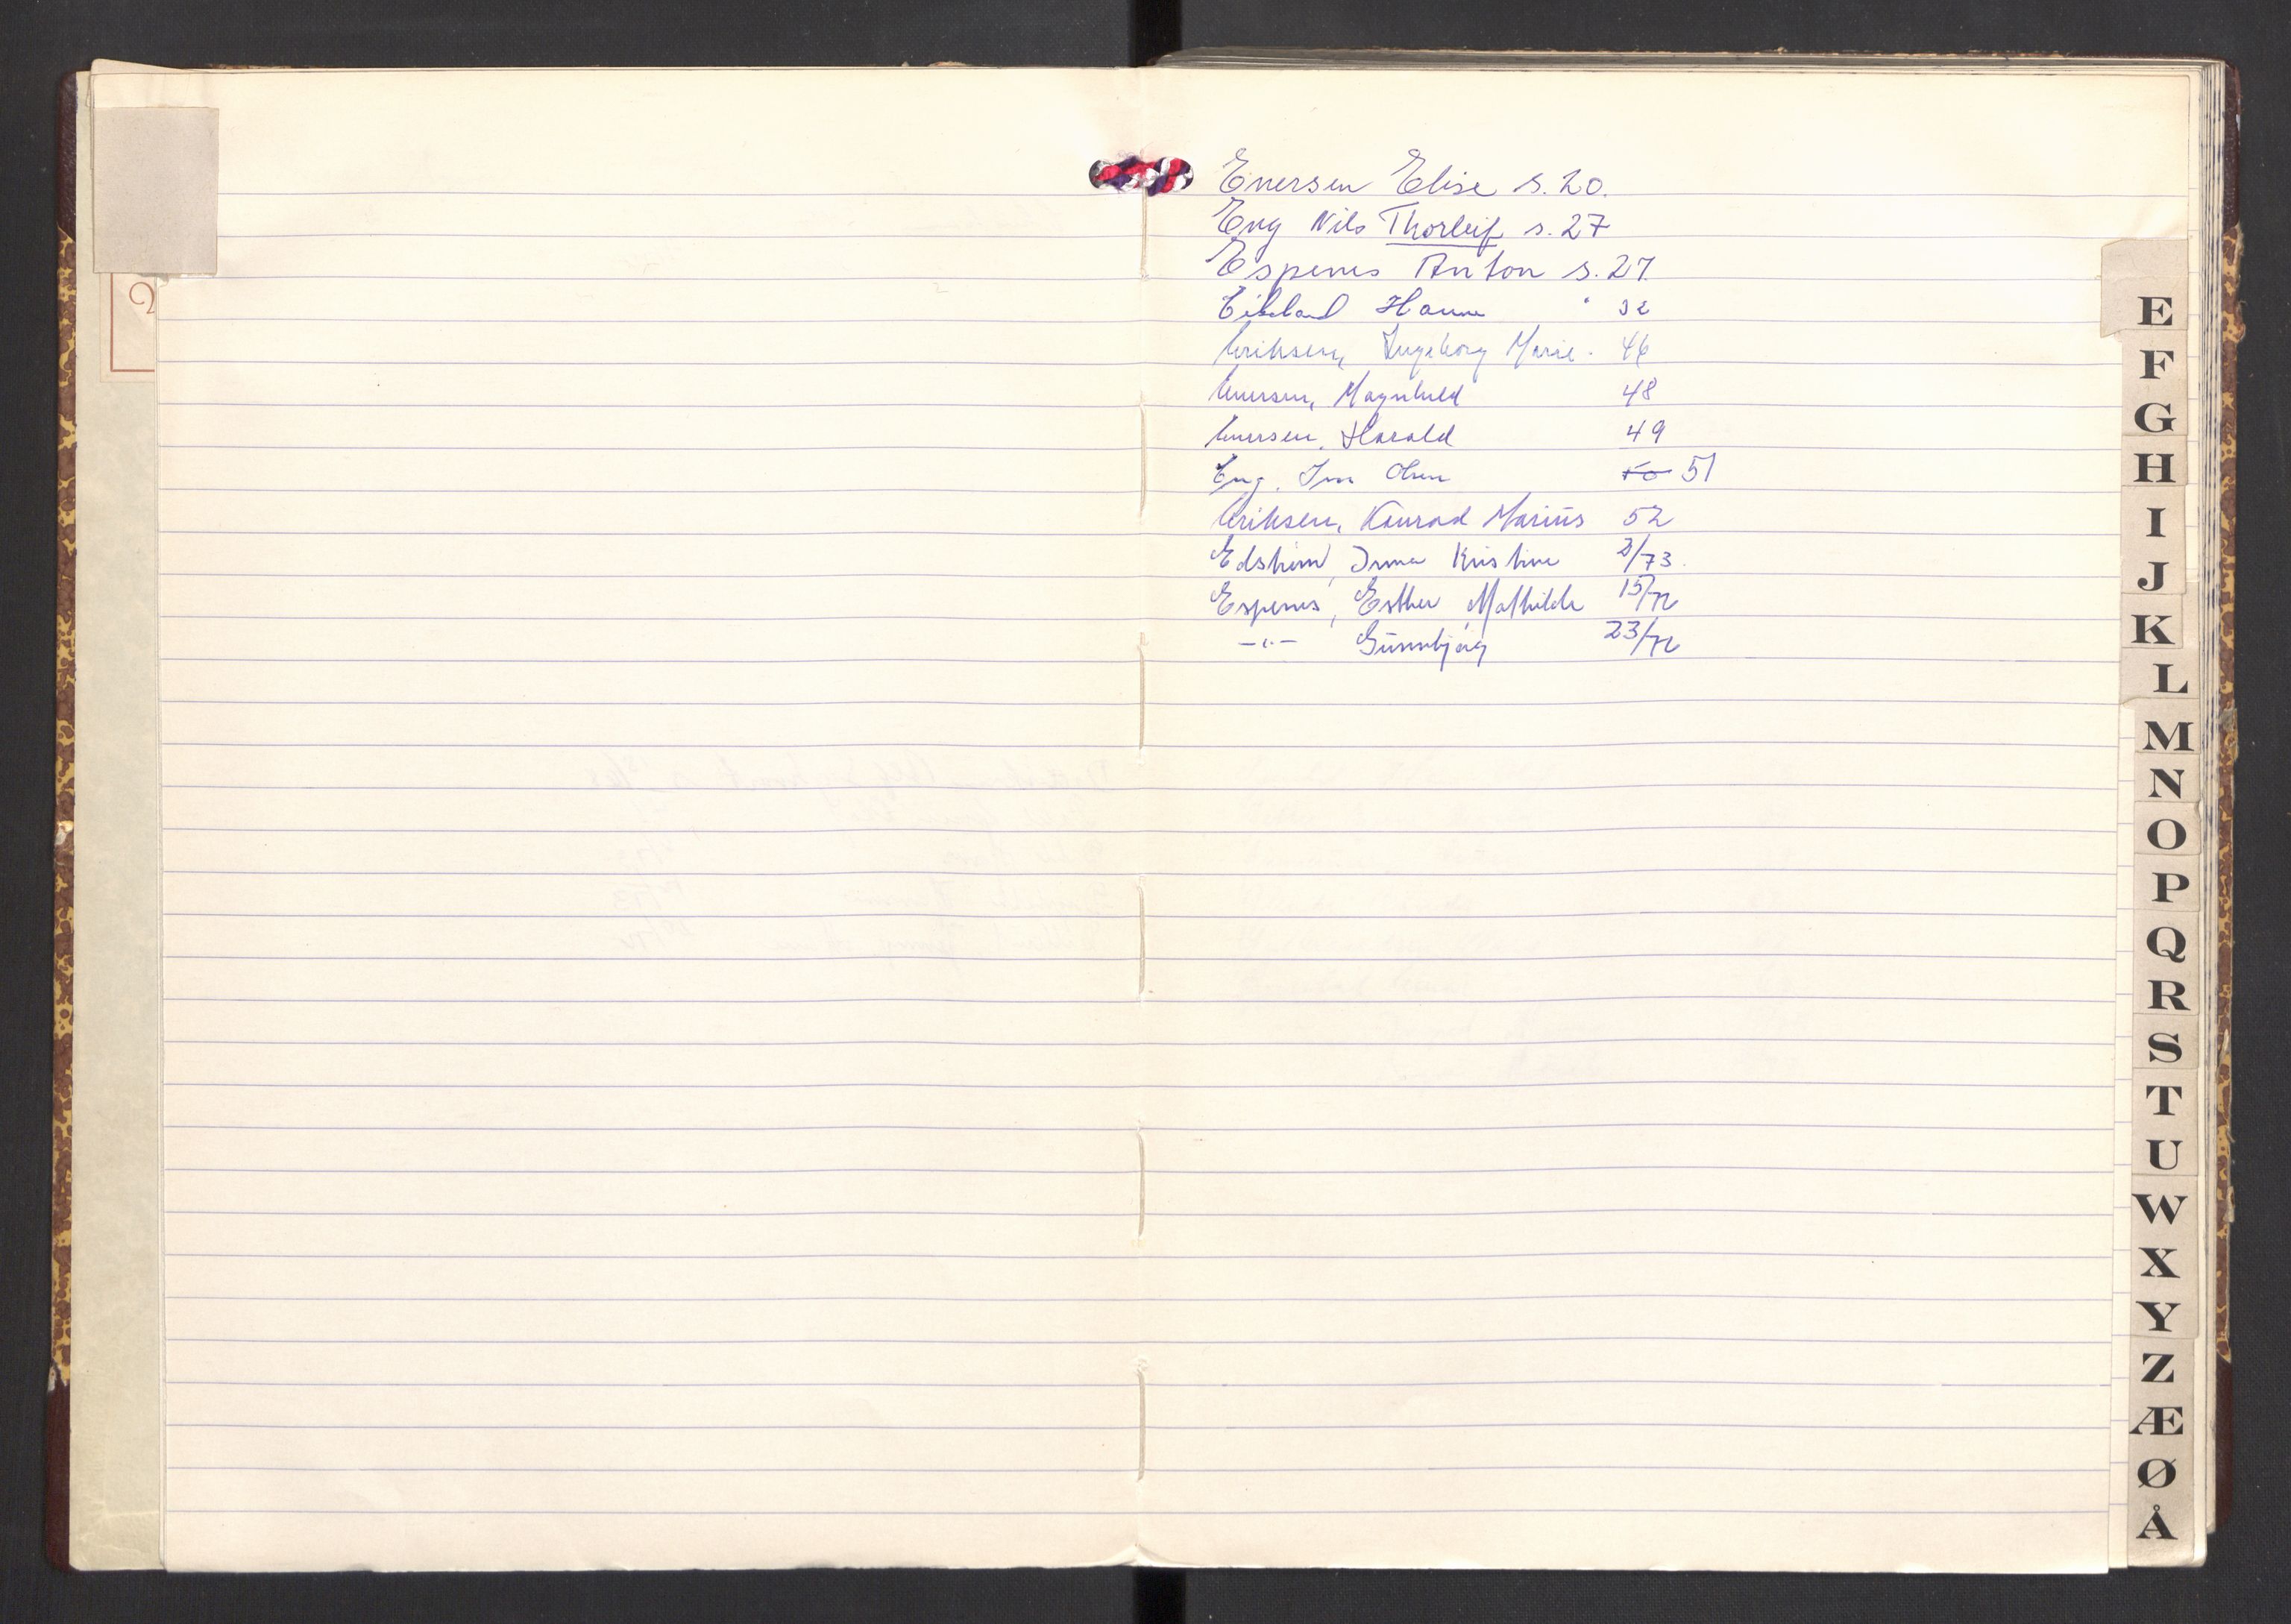 Enersen Elise s. 20.
Eng Nils Thorleif s. 27
Espenes Anton s. 27
Hanna " 32
Eriksen, Ingeborg Marie. 46
Enersen, Magnhild 48
Enersen, Harald 49
Eng, Olsen 50 51
Eriksen, Konrad Marius 52
Edstrøm, Irma Kristine 2/73.
Espenes, Esther Mathilde 15/72
—"— Gunnbjørg 23/72
E
F
G
H
I
J
K
L
M
N
O
P
Q
R
S
T
U
W
X
Y
Z
Æ
Ø
Å